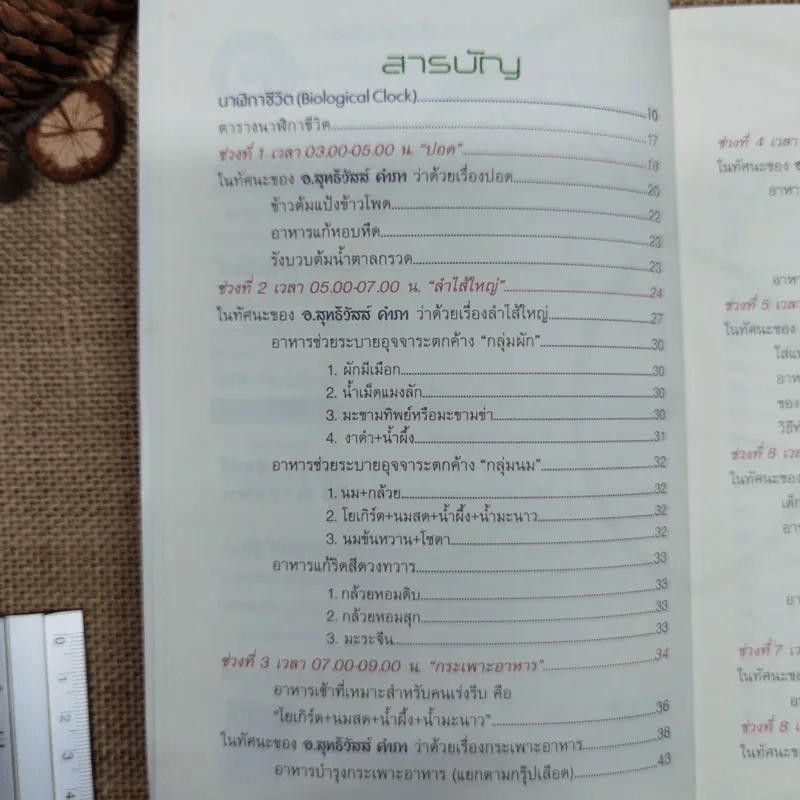 สารบัญ
นาฬิกาชีวิต (Biological Clock)..........16
ตารางนาฬิกาชีวิต..........17
ช่วงที่ 1 เวลา 03.00-05.00 น. "ปอด"..........18
ในทัศนะของ อ.สุทธิวัสส์ คำภา ว่าด้วยเรื่องปอด..........20
ข้าวต้มแป้งข้าวโพด..........22
อาหารแก้หอบหืด..........23
รังบวบต้มน้ำตาลกรวด..........23
ช่วงที่ 2 เวลา 05.00-07.00 น. "ลำไส้ใหญ่"..........24
ในทัศนะของ อ.สุทธิวัสส์ คำภา ว่าด้วยเรื่องลำไส้ใหญ่..........27
อาหารช่วยระบายอุจจาระตกค้าง "กลุ่มผัก"..........30
1. ผักมีเมือก..........30
2. น้ำเม็ดแมงลัก..........30
3. มะขามทิพย์หรือมะขามซ่า..........30
4. งาดำ+น้ำผึ้ง..........31
อาหารช่วยระบายอุจจาระตกค้าง "กลุ่มนม"..........32
1. นม+กล้วย..........32
2. โยเกิร์ต+นมสด+น้ำผึ้ง+น้ำมะนาว..........32
3. นมข้นหวาน+โซดา..........32
อาหารแก้ริดสีดวงทวาร..........33
1. กล้วยหอมดิบ..........33
2. กล้วยหอมสุก..........33
3. มะระจีน..........33
ช่วงที่ 3 เวลา 07.00-09.00 น. "กระเพาะอาหาร"..........34
อาหารเช้าที่เหมาะสำหรับคนเร่งรีบ คือ
"โยเกิร์ต+นมสด+น้ำผึ้ง+น้ำมะนาว"..........36
ในทัศนะของ อ.สุทธิวัสส์ คำภา ว่าด้วยเรื่องกระเพาะอาหาร..........38
อาหารบำรุงกระเพาะอาหาร (แยกตามกรุ๊ปเลือด)..........43
ช่วงที่ 4 เวลา
ในทัศนะของ
ช่วงที่ 5 เวลา
ในทัศนะของ
ของ
ช่วงที่ 6 เวลา
ในทัศนะของ
ช่วงที่ 7 เวลา
ในทัศนะของ
ช่วงที่ 8
ในทัศนะของ